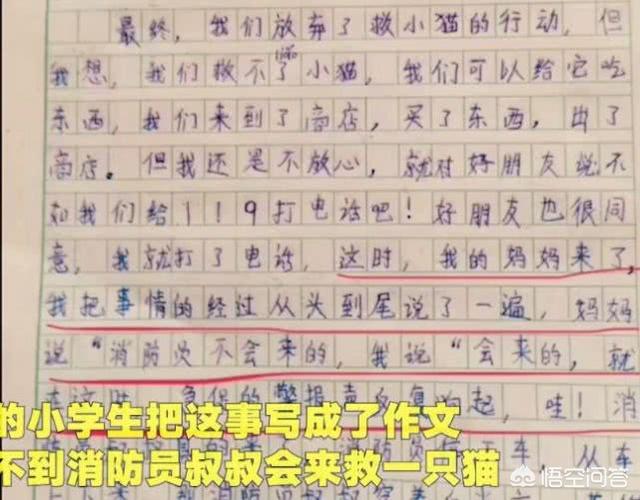 最终，我们放弃了救小猫的行动，但
我想，我们救不了小猫，我们可以给它吃
东西，我们来到了商店，买了东西，出了
商店。但我还是不放心，就对好朋友说不
如我们给119打电话吧！好朋友也很同
意，我就打了电话，这时，我的妈妈来了，
我把事情的经过从头到尾说了一遍，妈妈
说“消防员不会来的，我说“会来的，就
在这时，急促的警报声响起，哇！消
的小学生把这事写成了作文
下车，从车
不到消防员叔叔会来救一只猫
悟空问答